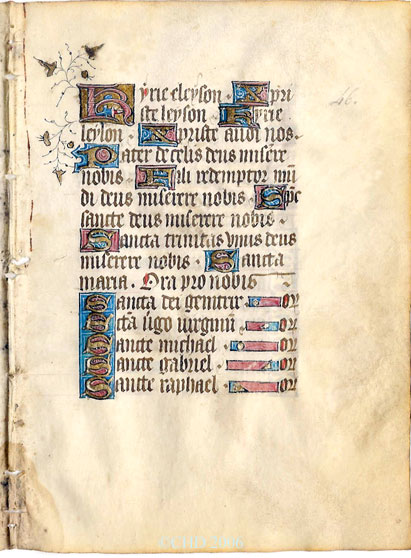 Kyrie eleyson · Xpri
ste leyson · Kyrie
leyson · Xpriste audi nos ·
Pater de celis deus misere
nobis · Fili redemptor mū
di deus miserere nobis · Sps
sancte deus miserere nobis ·
Sancta trinitas vnus deus
miserere nobis · Sancta
maria · Ora pro nobis
Sancta dei genitrix · or
Sctā virgo virginū · or
Sancte michael · or
Sancte gabriel · or
Sancte raphael · or
46.